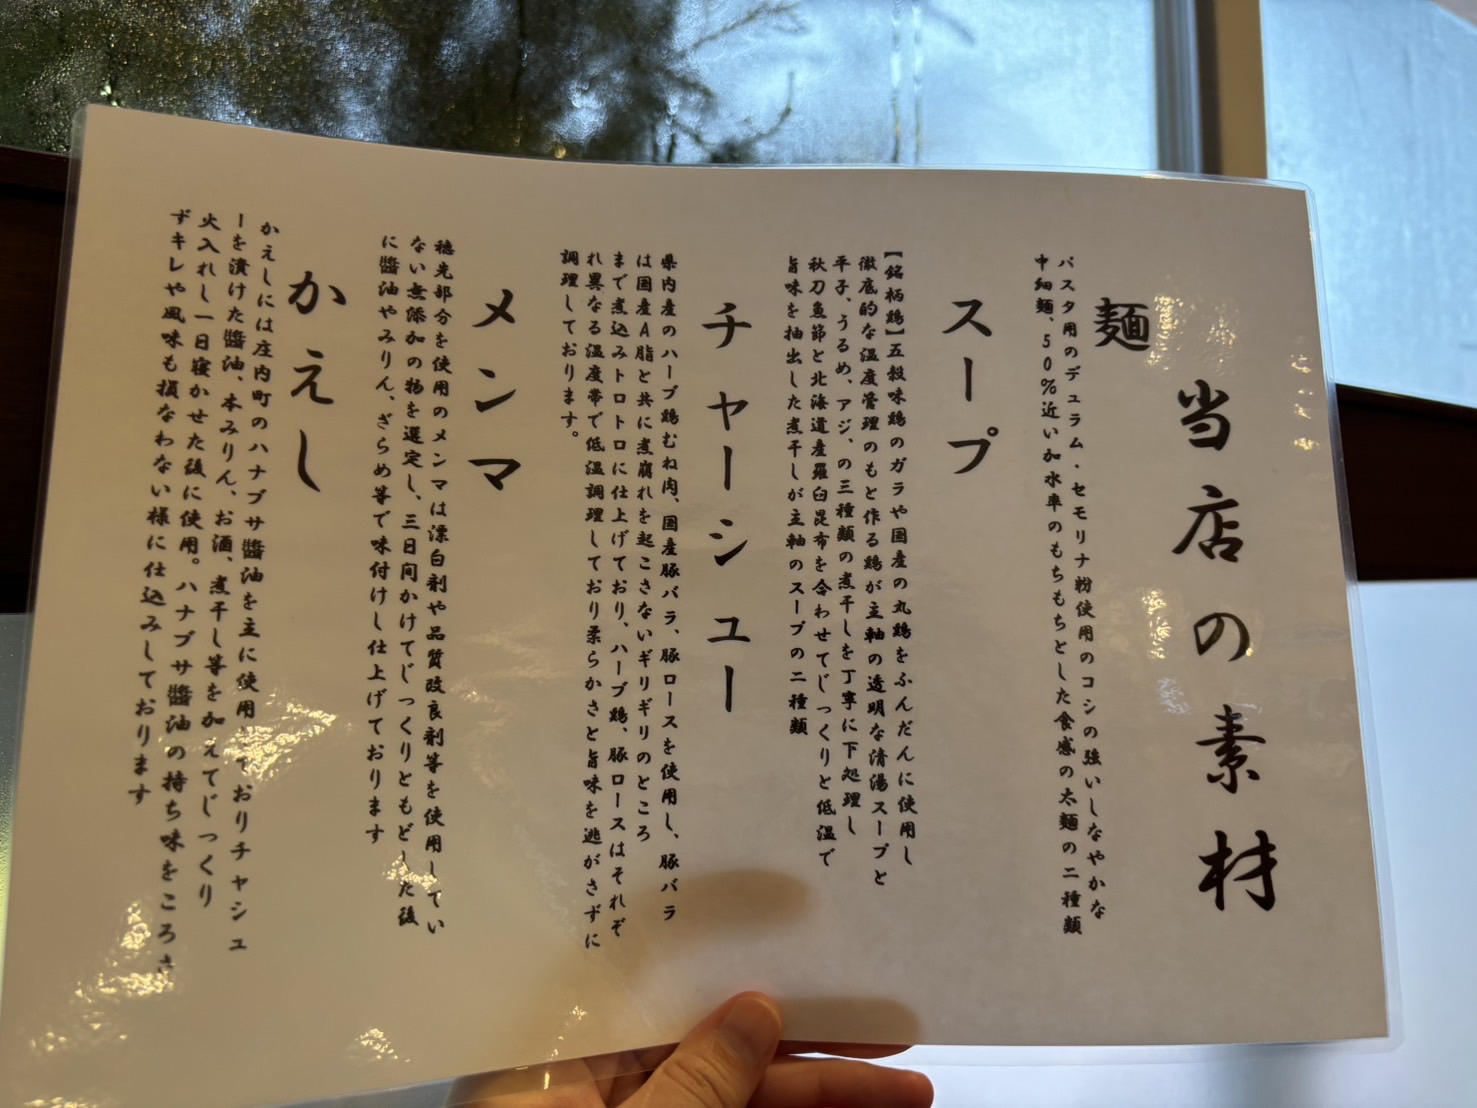 当店の素材
麺
パスタ用のデュラム・セモリナ粉使用のコシの強いしなやかな
中細麺、50%近い加水率のもちもちとした食感の太麺の二種類
スープ
【銘柄鶏】五穀味鶏のガラや国産の丸鶏をふんだんに使用し
徹底的な温度管理のもと作る鶏が主軸の透明な清湯スープと
平子、うるめ、アジ、の三種類の煮干しを丁寧に下処理し
秋刀魚節と北海道産羅臼昆布を合わせてじっくりと低温で
旨味を抽出した煮干しが主軸のスープの二種類
チャーシュー
県内産のハーブ鶏むね肉、国産豚バラ、豚ロースを使用し、豚バラ
は国産A脂と共に煮崩れを起こさないギリギリのところ
まで煮込みトロトロに仕上げており、ハーブ鶏、豚ロースはそれぞ
れ異なる温度帯で低温調理しており柔らかさと旨味を逃がさずに
調理しております。
メンマ
穂先部分を使用のメンマは漂白剤や品質改良剤等を使用してい
ない無添加の物を選定し、三日間かけてじっくりともどした後
に醤油やみりん、ざらめ等で味付けし仕上げております
かえし
かえしには庄内町のハナブサ醬油を主に使用しておりチャシュ
ーを漬けた醬油、本みりん、お酒、煮干し等を加えてじっくり
火入れし一日寝かせた後に使用。ハナブサ醬油の持ち味をころさ
ずキレや風味も損なわない様に仕込みしております